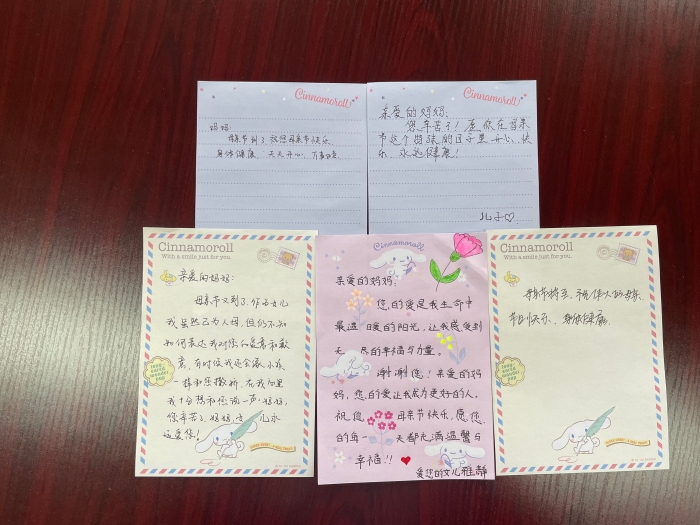 Cinnamoroll
妈妈:
母亲节到了祝您母亲节快乐
身体健康、天天开心、万事如意
Cinnamoroll
亲爱的妈妈:
您辛苦了!愿你在母亲
节这个特殊的日子里开心、快
乐、永远健康!
儿子♡
Cinnamoroll
With a smile just for you.
亲爱的妈妈:
母亲节又到了,作为女儿
我虽然已为人母,但仍不知
如何表达我对您的爱意和歉
意,有时候我还会像小孩
一样和您撒娇,在我心里
我十分想和您说一声:妈妈,
您辛苦了,妈妈,女儿永
远爱您!
Cinnamoroll
亲爱的妈妈:
您的爱是我生命中
最温暖的阳光,让我感受到
无尽的幸福与力量。
谢谢您!亲爱的妈
妈,您的爱让我成为更好的人。
祝您母亲节快乐,愿您
的每一天都充满温馨与
幸福!!
爱您的女儿雅静
Cinnamoroll
With a smile just for you.
母亲节将至,祝伟大的母亲
节日快乐、身体健康